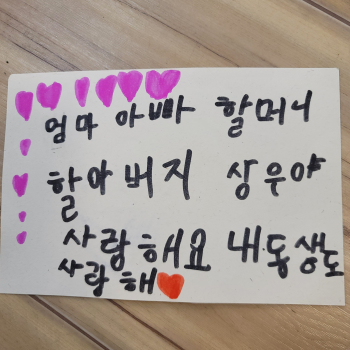 엄마 아빠 할머니
할아버지 상우야
사랑해요 내동생도
사랑해